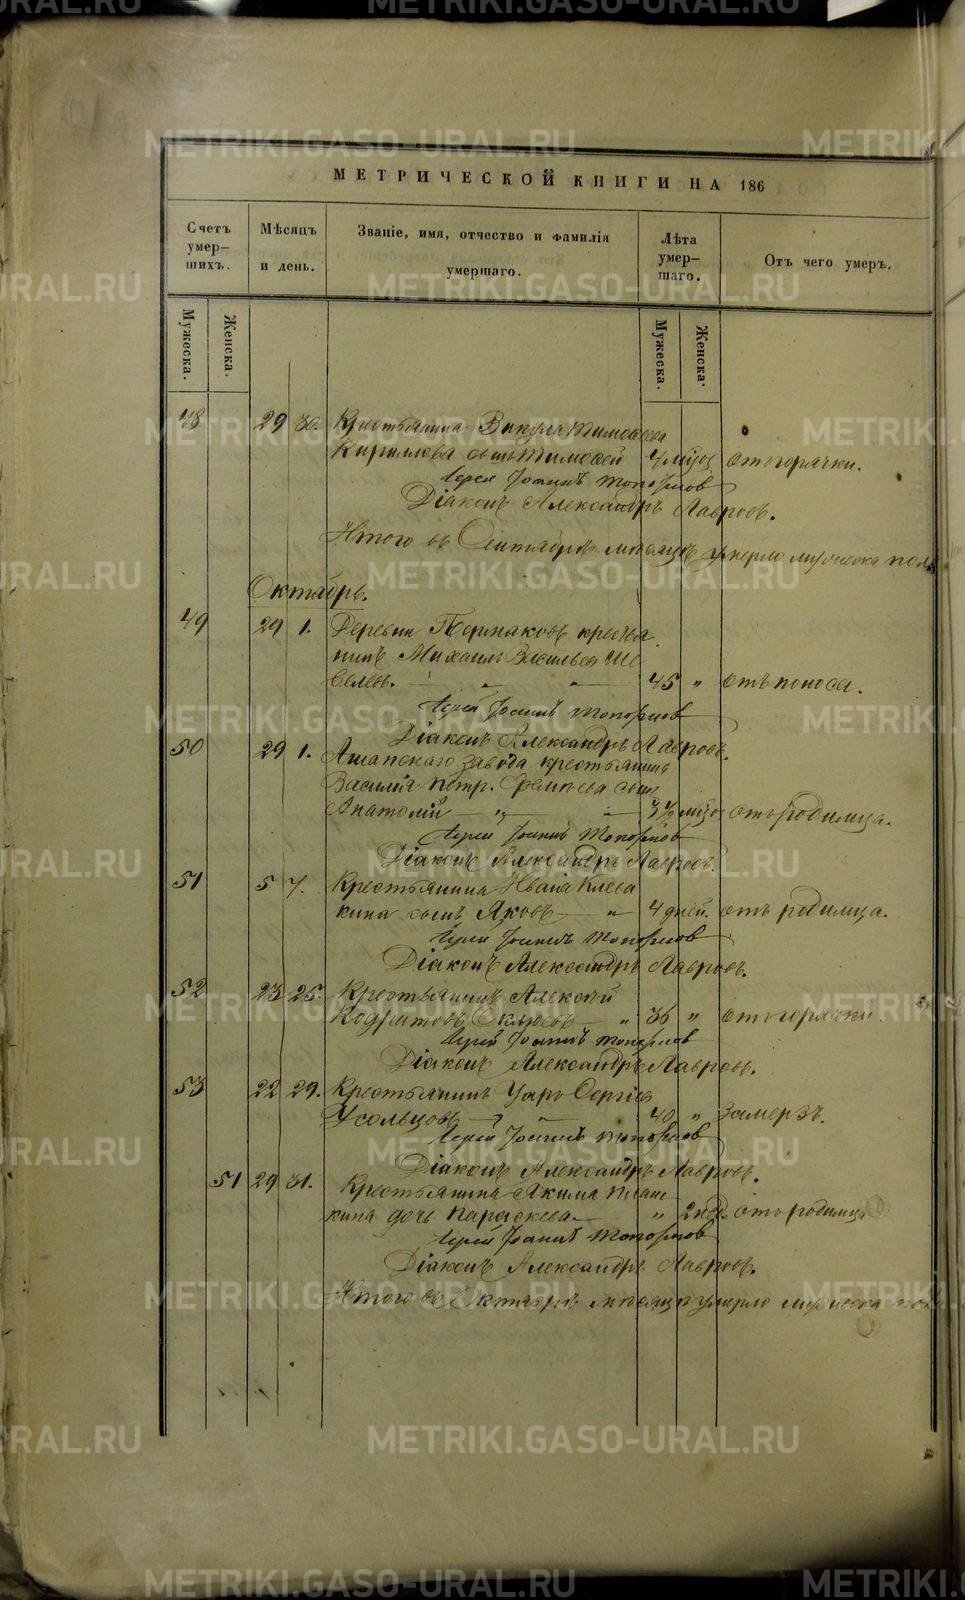 МЕТРИЧЕСКОЙ КНИГИ НА 186
Счетъ умер-шихъ.
Мѣсяцъ и день.
Званіе, имя, отчество и фамилія умершаго.
Лѣта умер-шаго.
Отъ чего умеръ.
Мужеска.
Женска.
Мужеска.
Женска.
48 29 30. Крестьянина Викула Тимоѳеева
Кириллова сынъ Тимоѳей 4 отъ горячки.
Іерей Іоаннъ Топорковъ
Діаконъ Александръ Лавровъ.
Итого въ Сентябрѣ мѣсяцѣ умерло мужеска пола
Октябрь.
49 29 1. Деревни крестья
нинъ Михаилъ Васильевъ Ше
велевъ. 45 " отъ поноса.
Іерей Іоаннъ Топорковъ
Діаконъ Александръ Лавровъ.
50 29 1. Ашапскаго завода крестьянина
Василія Петр. сынъ
Анатолій отъ родимца.
Іерей Іоаннъ Топорковъ
Діаконъ Александръ Лавровъ.
51 5 7. Крестьянина Ивана Клева
кина сынъ Яковъ " 4 дней. отъ родимца.
Іерей Іоаннъ Топорковъ
Діаконъ Александръ Лавровъ.
52 23 25. Крестьянинъ Алексѣй
" 36 " отъ горячки.
Іерей Іоаннъ Топорковъ
Діаконъ Александръ Лавровъ.
53 22 29. Крестьянинъ Уаръ Сергіевъ
Усольцовъ 40 " Замерзъ.
Іерей Іоаннъ Топорковъ
Діаконъ Александръ Лавровъ.
51 29 31. Крестьянина Якима
кина дочь Параскева " 2 нед. отъ родимца
Іерей Іоаннъ Топорковъ
Діаконъ Александръ Лавровъ.
Итого въ Октябрѣ мѣсяцѣ умерло мужеска пола
METRIKI.GASO-URAL.RU